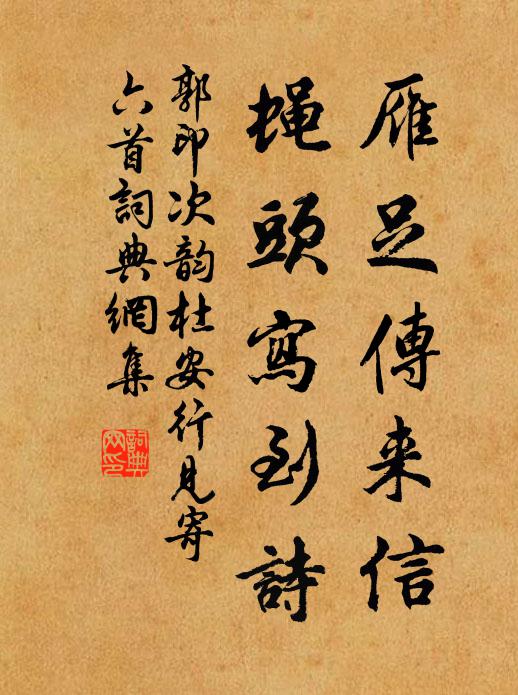 雁足傳来信
蝇頭寫到詩
郭印次韵杜安行見寄
六首詞典網集
詞典
网印